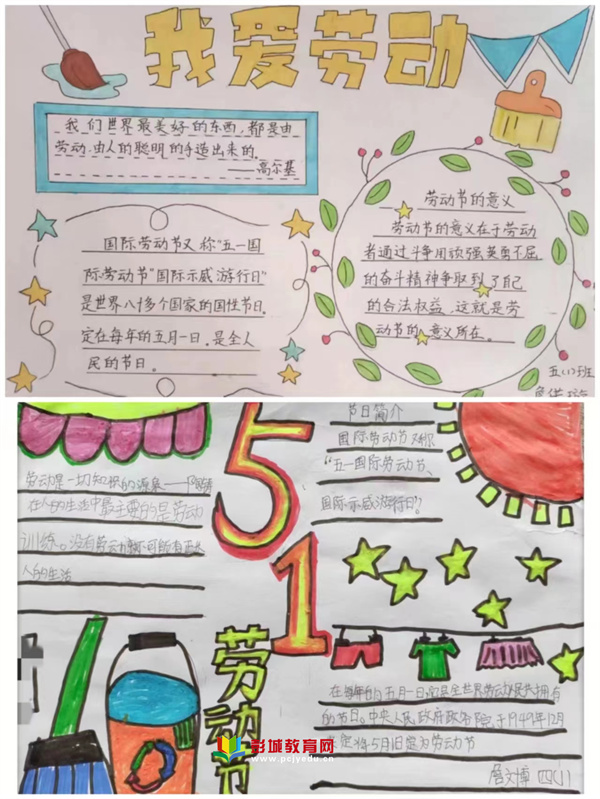 我爱劳动
我们世界最美好的东西,都是由
劳动,由人的聪明的手造出来的。
——高尔基
国际劳动节又称“五一国
际劳动节”“国际示威游行日”
是世界八十多个国家的国性节日。
定在每年的五月一日。是全人
民的节日。
劳动节的意义
劳动节的意义在于劳动
者通过斗争用顽强英勇不屈
的奋斗精神争取到了自己
的合法权益,这就是劳
动节的意义所在。
五(1)班
51
劳动节
劳动是一切知识的源泉——
在人的生活中最主要的是劳动
训练。没有劳动就不可能有正常
人的生活
节日简介
国际劳动节又称
“五一国际劳动节、
国际示威游行日”
在每年的五月一日,它是全世界劳动人民共拥有
的节日。中央人民政府政务院于1949年12月
将5月1日定为劳动节
詹文博 四(1)
彭城教育网
www.pcjyedu.cn